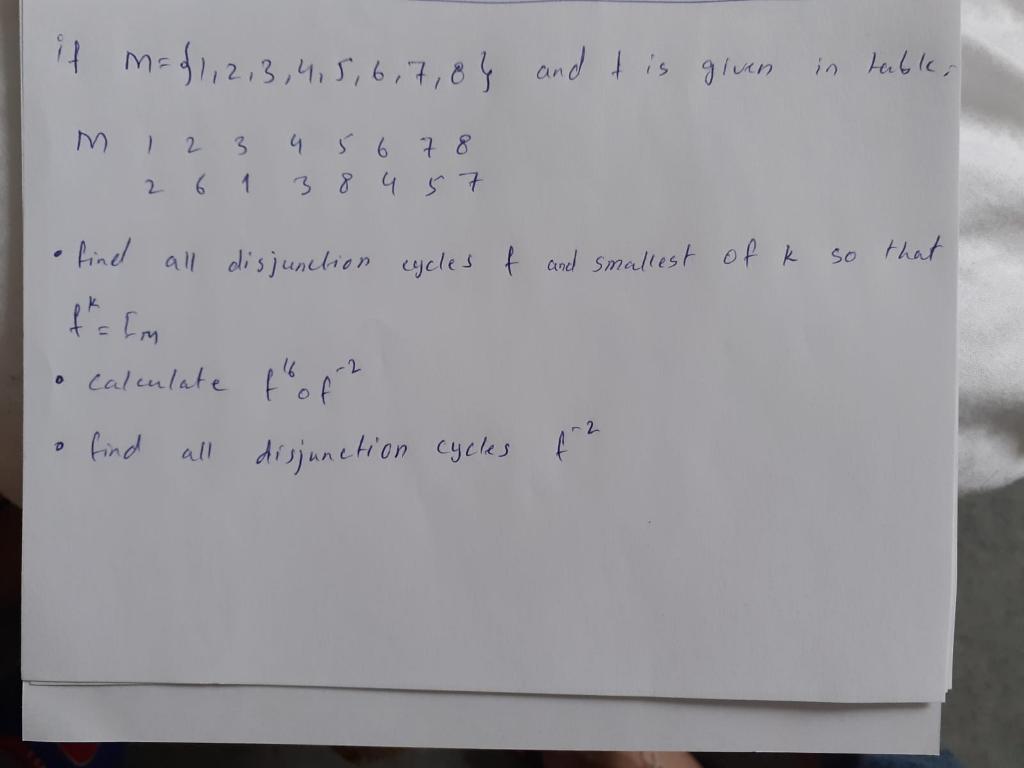 if m={1,2,3,4,5,6,7,8} and f is given in table:
m 1 2 3 4 5 6 7 8
2 6 1 3 8 4 5 7
• find all disjunction cycles f and smallest of k so that
f^k = Im
• calculate f^16 o f^-2
• find all disjunction cycles f^-2